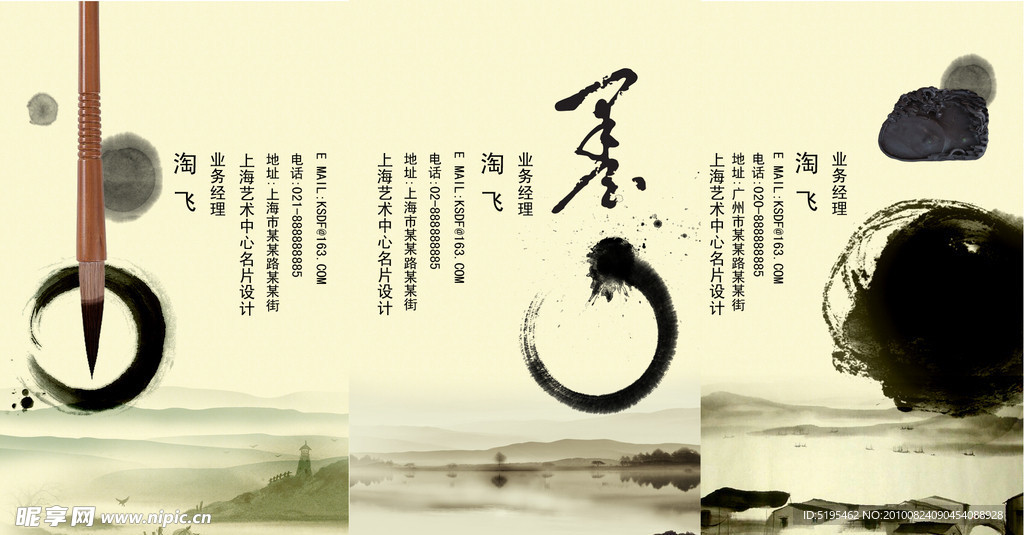 淘飞
业务经理
上海艺术中心名片设计
地址:上海市某某路某某街
电话:021-888888885
E MAIL:KSDF@163.COM
上海艺术中心名片设计
地址:上海市某某路某某街
电话:02-888888885
E MAIL:KSDF@163.COM
淘飞
业务经理
墨
上海艺术中心名片设计
地址:广州市某某路某某街
电话:020-888888885
E MAIL:KSDF@163.COM
淘飞
业务经理
昵享网 www.nipic.cn
ID:5195462 NO:20100824090454088928